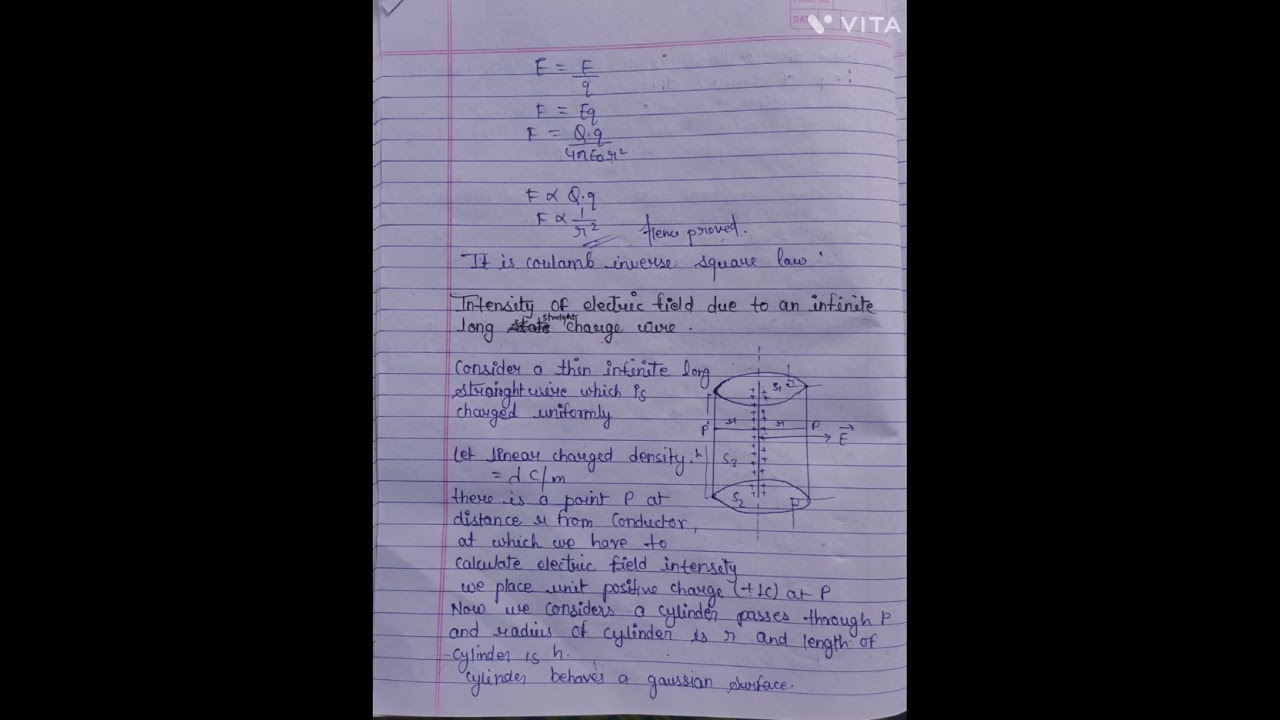 PAGE NO.
DATE
VITA
E = F/q
F = Eq
F = Q.q/4πε0r²
F ∝ Q.q
F ∝ 1/r²
Hence proved.
It is coulamb inverse square law.
Intensity of electric field due to an infinite
long straight charge wire.
Consider a thin infinite long
straight wire which is
charged uniformly
Let linear charged density.
= λ C/m
there is a point P at
distance r from Conductor,
at which we have to
calculate electric field intensity
we place unit positive charge (+1C) at P
Now we considers a cylinder passes through P
and radius of cylinder is r and length of
cylinder is h.
cylinder behaves a gaussian surface.
S1
P' r r P
E
h
S3
S2